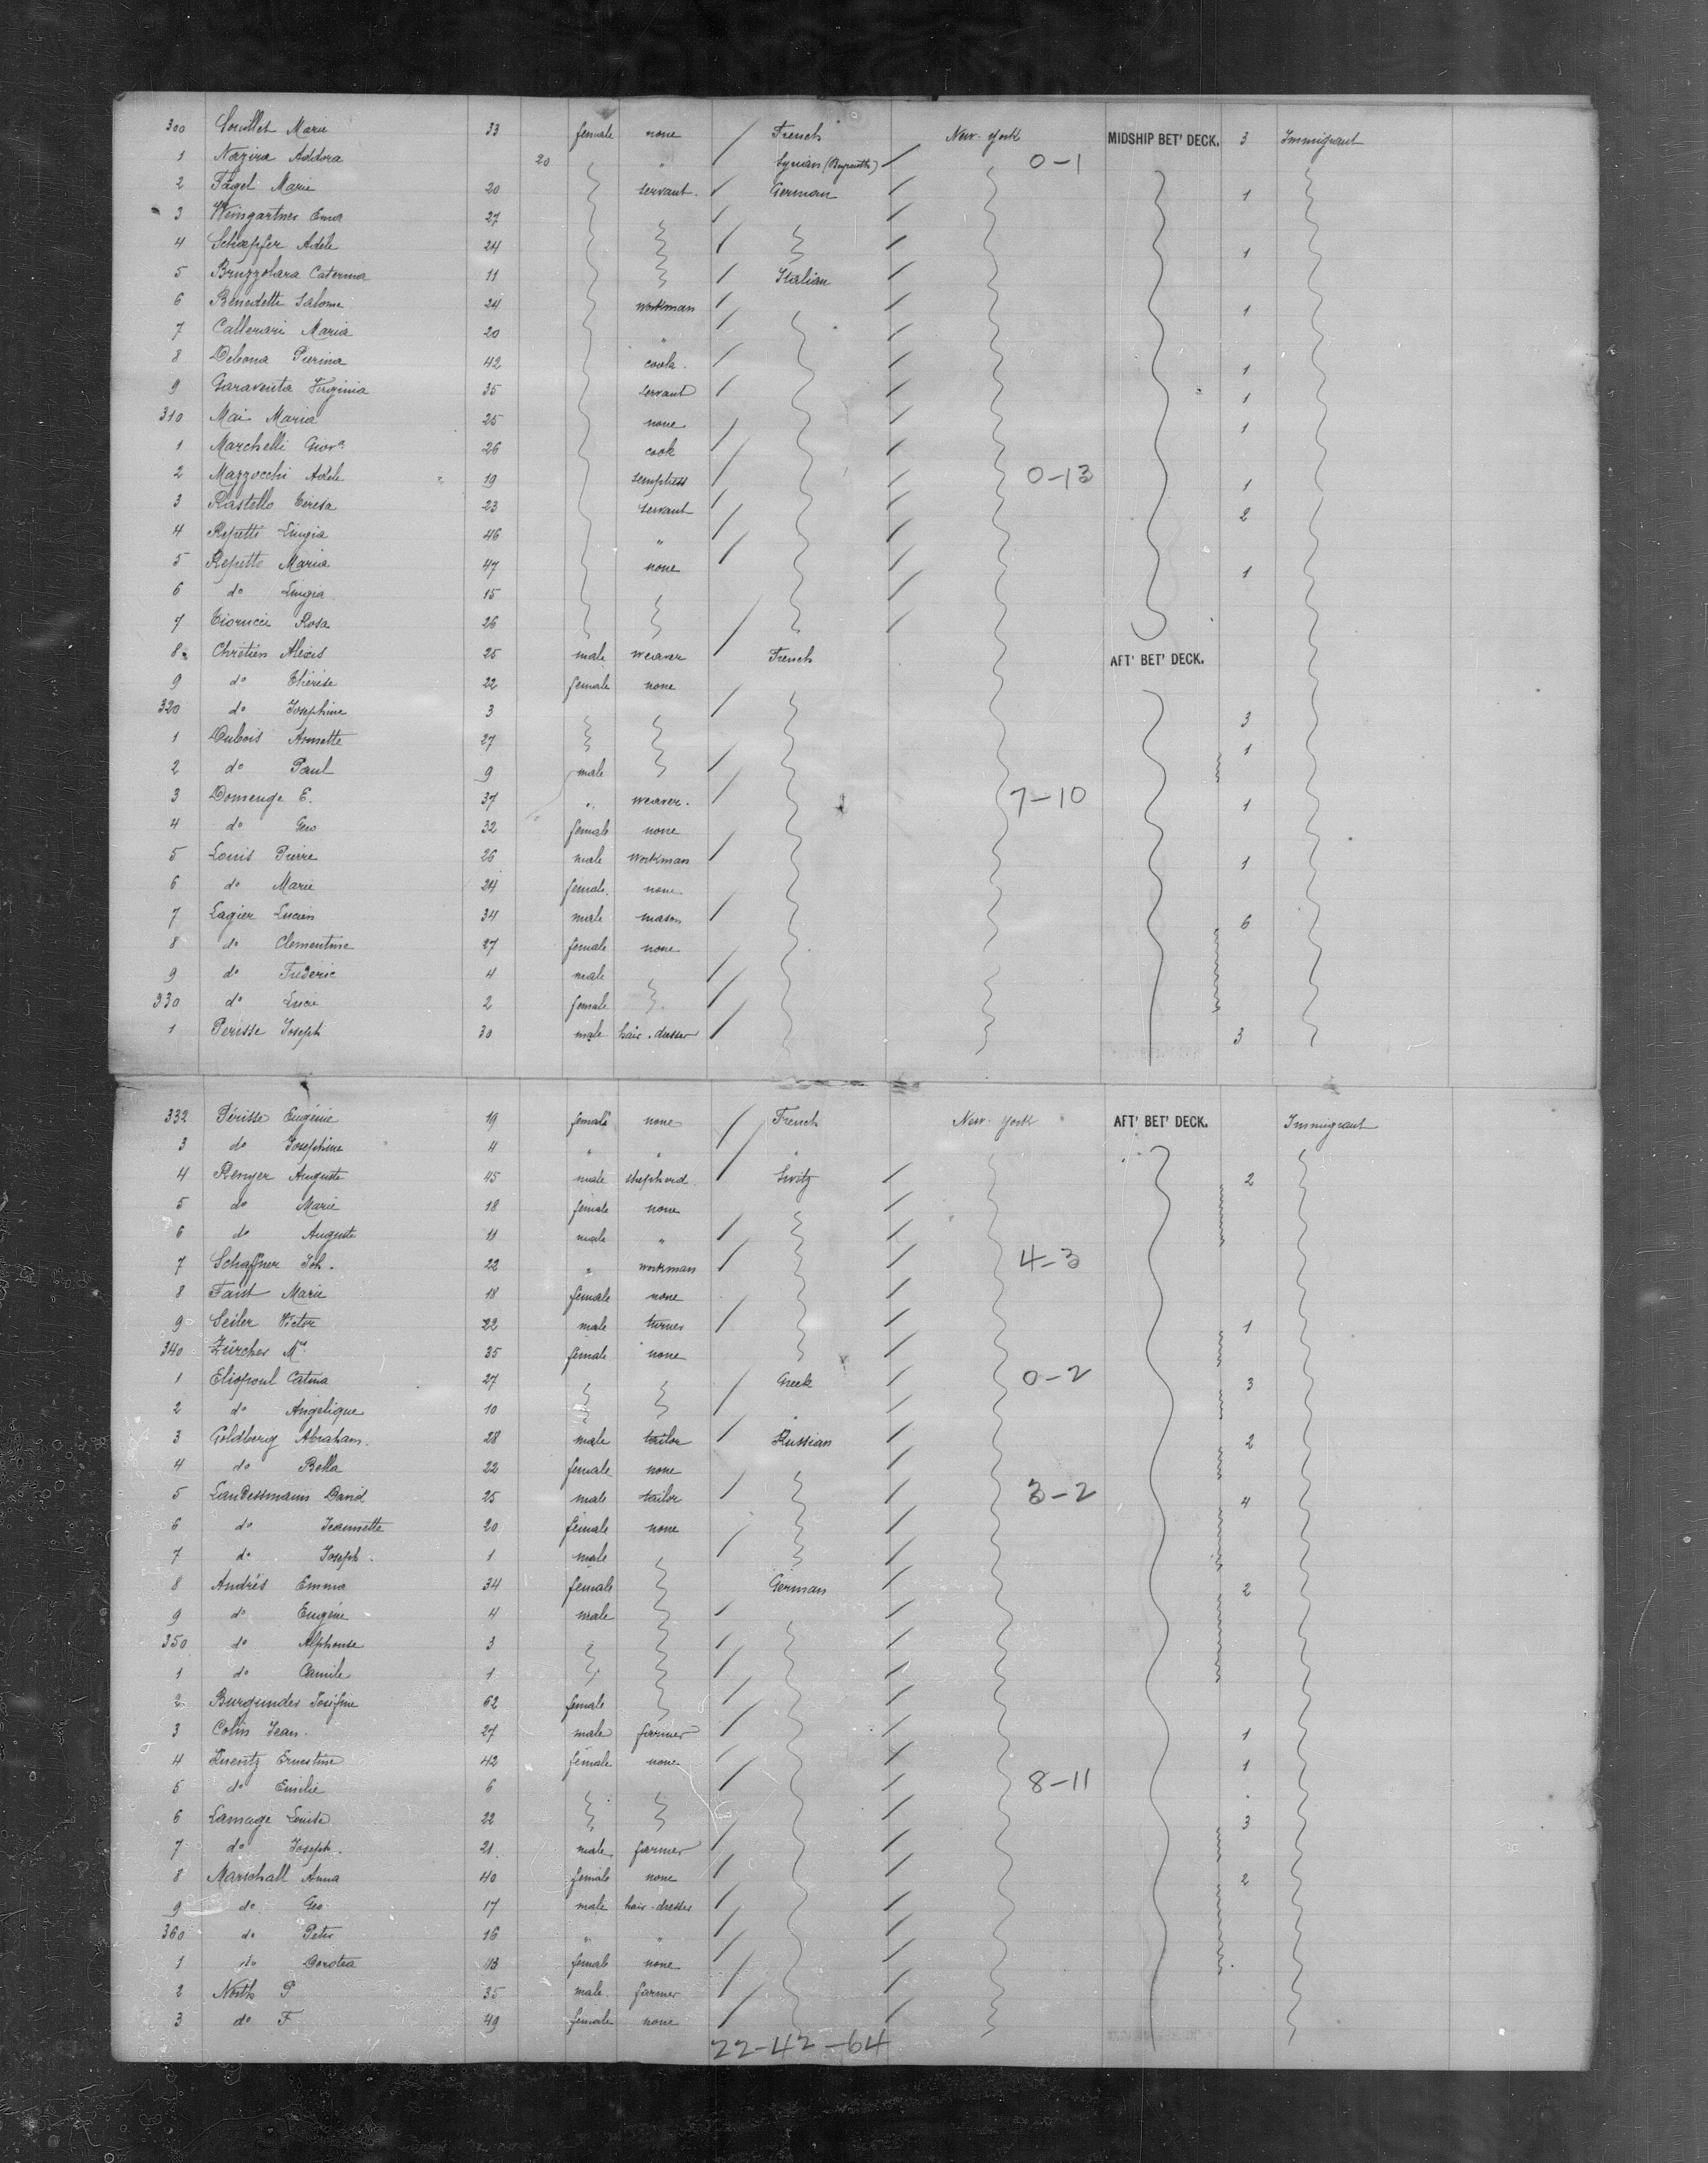 300 Souillet Marie 33 female none French New-York MIDSHIP BET' DECK. 3 Immigrant
1 Nazira Addora 20 " Syrian (Beyrouth) 0-1
2 Fagel Marie 20 servant German 1
3 Weingartner Ema 27
4 Schaepfer Adele 24 1
5 Bruzzolara Caterina 11 Italian
6 Benedetti Salome 24 workman 1
7 Callerari Maria 20 "
8 Debona Pierina 42 cook 1
9 Garaventa Virginia 35 servant 1
310 Mai Maria 25 none 1
1 Marchelli Giovª 26 cook
2 Mazzocchi Adele 19 0-13 1
3 Rastello Teresa 23 servant 2
4 Repetti Luigia 46 "
5 Repetto Maria 47 none 1
6 do Luigia 15
7 Fiorucci Rosa 26
8 Chretien Alexis 25 male weaver French AFT' BET' DECK.
9 do Thérèse 22 female none
320 do Josephine 3 3
1 Dubois Annette 27 1
2 do Paul 9 male
3 Domenge E. 37 " weaver. 7-10 1
4 do Geo 32 female none
5 Louis Pierre 26 male workman 1
6 do Marie 24 female none
7 Lagier Lucien 34 male mason 6
8 do Clementine 27 female none
9 do Frederic 4 male
330 do Lucie 2 female
1 Perisse Joseph 30 male hair-dresser 3
332 Périsse Eugénie 19 female none French New-York AFT' BET' DECK. Immigrant
3 do Josephine 4 " " "
4 Renyer Auguste 45 male shepherd Switz 2
5 do Marie 18 female none
6 do Auguste 11 male "
7 Schaffner Joh. 22 " workman 4-3
8 Faist Marie 18 female none
9 Seiler Victor 22 male turner 1
340 Zürcher Mª 35 female none
1 Eliopoul Catina 27 Greek 0-2 3
2 do Angelique 10 "
3 Goldberg Abraham. 28 male tailor Russian 2
4 do Bella 22 female none
5 Landessmann David 25 male tailor 3-2 4
6 do Jeannette 20 female none
7 do Joseph. 1 male
8 Andrés Emma 34 female German 2
9 do Eugène 4 male
350 do Alphonse 3
1 do Camile 1
2 Burgunder Josifine 62 female
3 Colin Jean. 27 male farmer 1
4 Kuentz Ernestine 42 female none 1
5 do Emilie 6 8-11
6 Lamage Louise 22 3
7 do Joseph. 21 male farmer
8 Marschall Anna 40 female none 2
9 do Geo 17 male hair-dresser
360 do Peter 16 " "
1 do Dorotea 13 female none
2 North P 35 male farmer
3 do F 49 female none
22-42-64